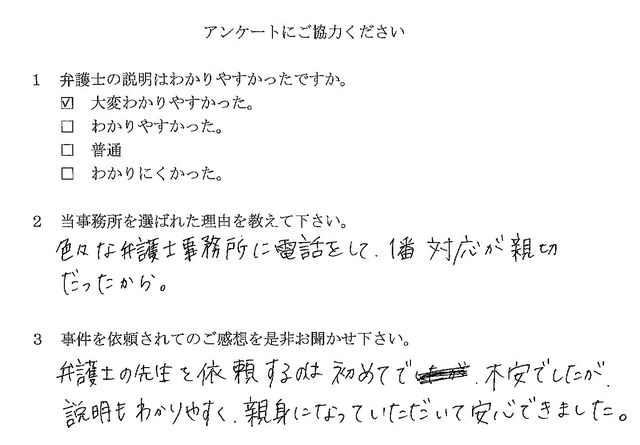 アンケートにご協力ください
1 弁護士の説明はわかりやすかったですか。
☑ 大変わかりやすかった。
□ わかりやすかった。
□ 普通
□ わかりにくかった。
2 当事務所を選ばれた理由を教えて下さい。
色々な弁護士事務所に電話をして、1番 対応が親切
だったから。
3 事件を依頼されてのご感想を是非お聞かせ下さい。
弁護士の先生を依頼するのは初めてで、不安でしたが、
説明もわかりやすく、親身になっていただいて安心できました。